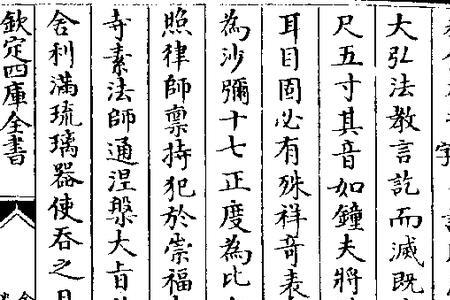 字
大弘法教言訖而滅既
尺五寸其音如鐘夫將
耳目固必有殊祥竒表
為沙彌十七正度為比
照律師禀持犯於崇福
寺素法師通涅槃大旨
舍利滿琉璃器使吞之
欽定四庫全書